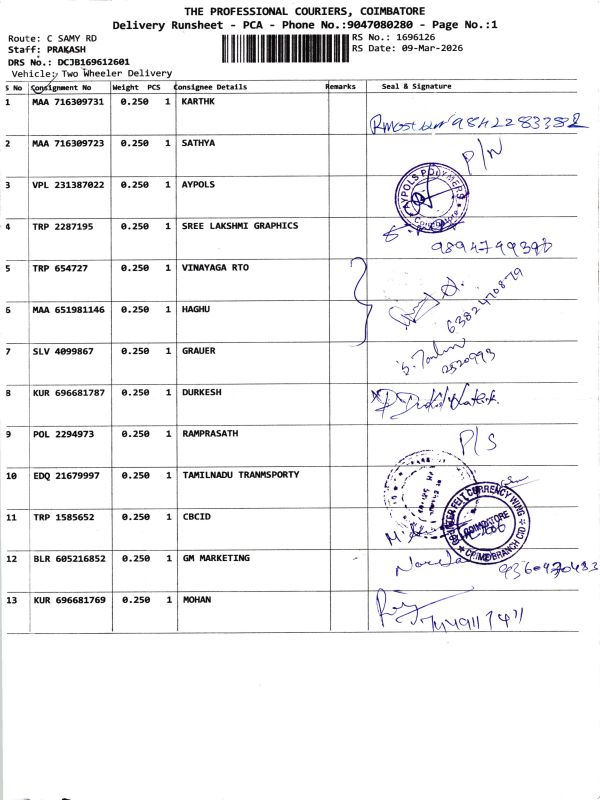 THE PROFESSIONAL COURIERS, COIMBATORE
Delivery Runsheet - PCA - Phone No.:9047080280 - Page No.:1
Route: C SAMY RD
RS No.: 1696126
Staff: PRAKASH
RS Date: 09-Mar-2026
DRS No.: DCJB169612601
Vehicle: Two Wheeler Delivery
S No Consignment No Weight PCS Consignee Details Remarks Seal & Signature
1 MAA 716309731 0.250 1 KARTHK
9842283382
2 MAA 716309723 0.250 1 SATHYA P/N
3 VPL 231387022 0.250 1 AYPOLS
AYPOLS POLYMERS
Coimbatore
4 TRP 2287195 0.250 1 SREE LAKSHMI GRAPHICS
5 TRP 654727 0.250 1 VINAYAGA RTO
6 MAA 651981146 0.250 1 HAGHU
6382470879
7 SLV 4099867 0.250 1 GRAUER
2520993
8 KUR 696681787 0.250 1 DURKESH
9 POL 2294973 0.250 1 RAMPRASATH P/S
10 EDQ 21679997 0.250 1 TAMILNADU TRANMSPORTY
11 TRP 1585652 0.250 1 CBCID
COUNTER FEIT CURRENCY WING
COIMBATORE
CRIME BRANCH CID
12 BLR 605216852 0.250 1 GM MARKETING
13 KUR 696681769 0.250 1 MOHAN